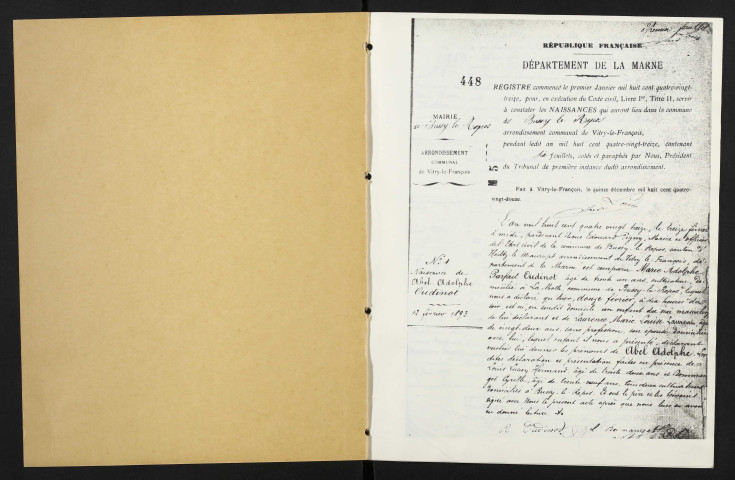 RÉPUBLIQUE FRANÇAISE
DÉPARTEMENT DE LA MARNE
448
REGISTRE commencé le premier Janvier mil huit cent quatre-vingt-
treize, pour, en exécution du Code civil, Livre Ier, Titre II, servir
à constater les NAISSANCES qui auront lieu dans la commune
de Bussy le Repos
arrondissement communal de Vitry-le-François,
pendant ledit an mil huit cent quatre-vingt-treize, contenant
feuillets, cotés et paraphés par Nous, Président
du Tribunal de première instance dudit arrondissement.
MAIRIE
de Bussy le Repos
ARRONDISSEMENT
COMMUNAL
de Vitry-le-François
Fait à Vitry-le-François, le quinze décembre mil huit cent quatre-
vingt-douze.
L'an mil huit cent quatre vingt treize, le treize février
à midi, pardevant Nous Edouard Maire et officier
de l'Etat civil de la commune de Bussy le Repos, canton de
Heiltz le Maurupt arrondissement de Vitry le François, dé-
partement de la Marne est comparu Marie Adolphe
Parfait Oudinot âgé de trente un ans, cultivateur, do-
micilié à La Motte commune de Bussy le Repos, lequel
nous a déclaré qu'hier, douze février, à six heures du
soir, est né, en son dit domicile un enfant du sexe masculin
de lui déclarant et de Laurence Marie Louise âgée
de vingt deux ans, sans profession, son épouse, domiciliée
avec lui, lequel enfant il nous a présenté, et déclarant
vouloir lui donner les prénoms de Abel Adolphe. Les
dites déclaration et présentation faites en présence de
Louis âgé de trente deux ans et
âgé de trente neuf ans, tous deux cultivateurs
domiciliés à Bussy le Repos. Et ont le père et les témoins
signé avec Nous le présent acte après que nous leur en avons
en donné lecture
N° 1
Naissance de
Abel Adolphe
Oudinot
12 février 1893
Oudinot